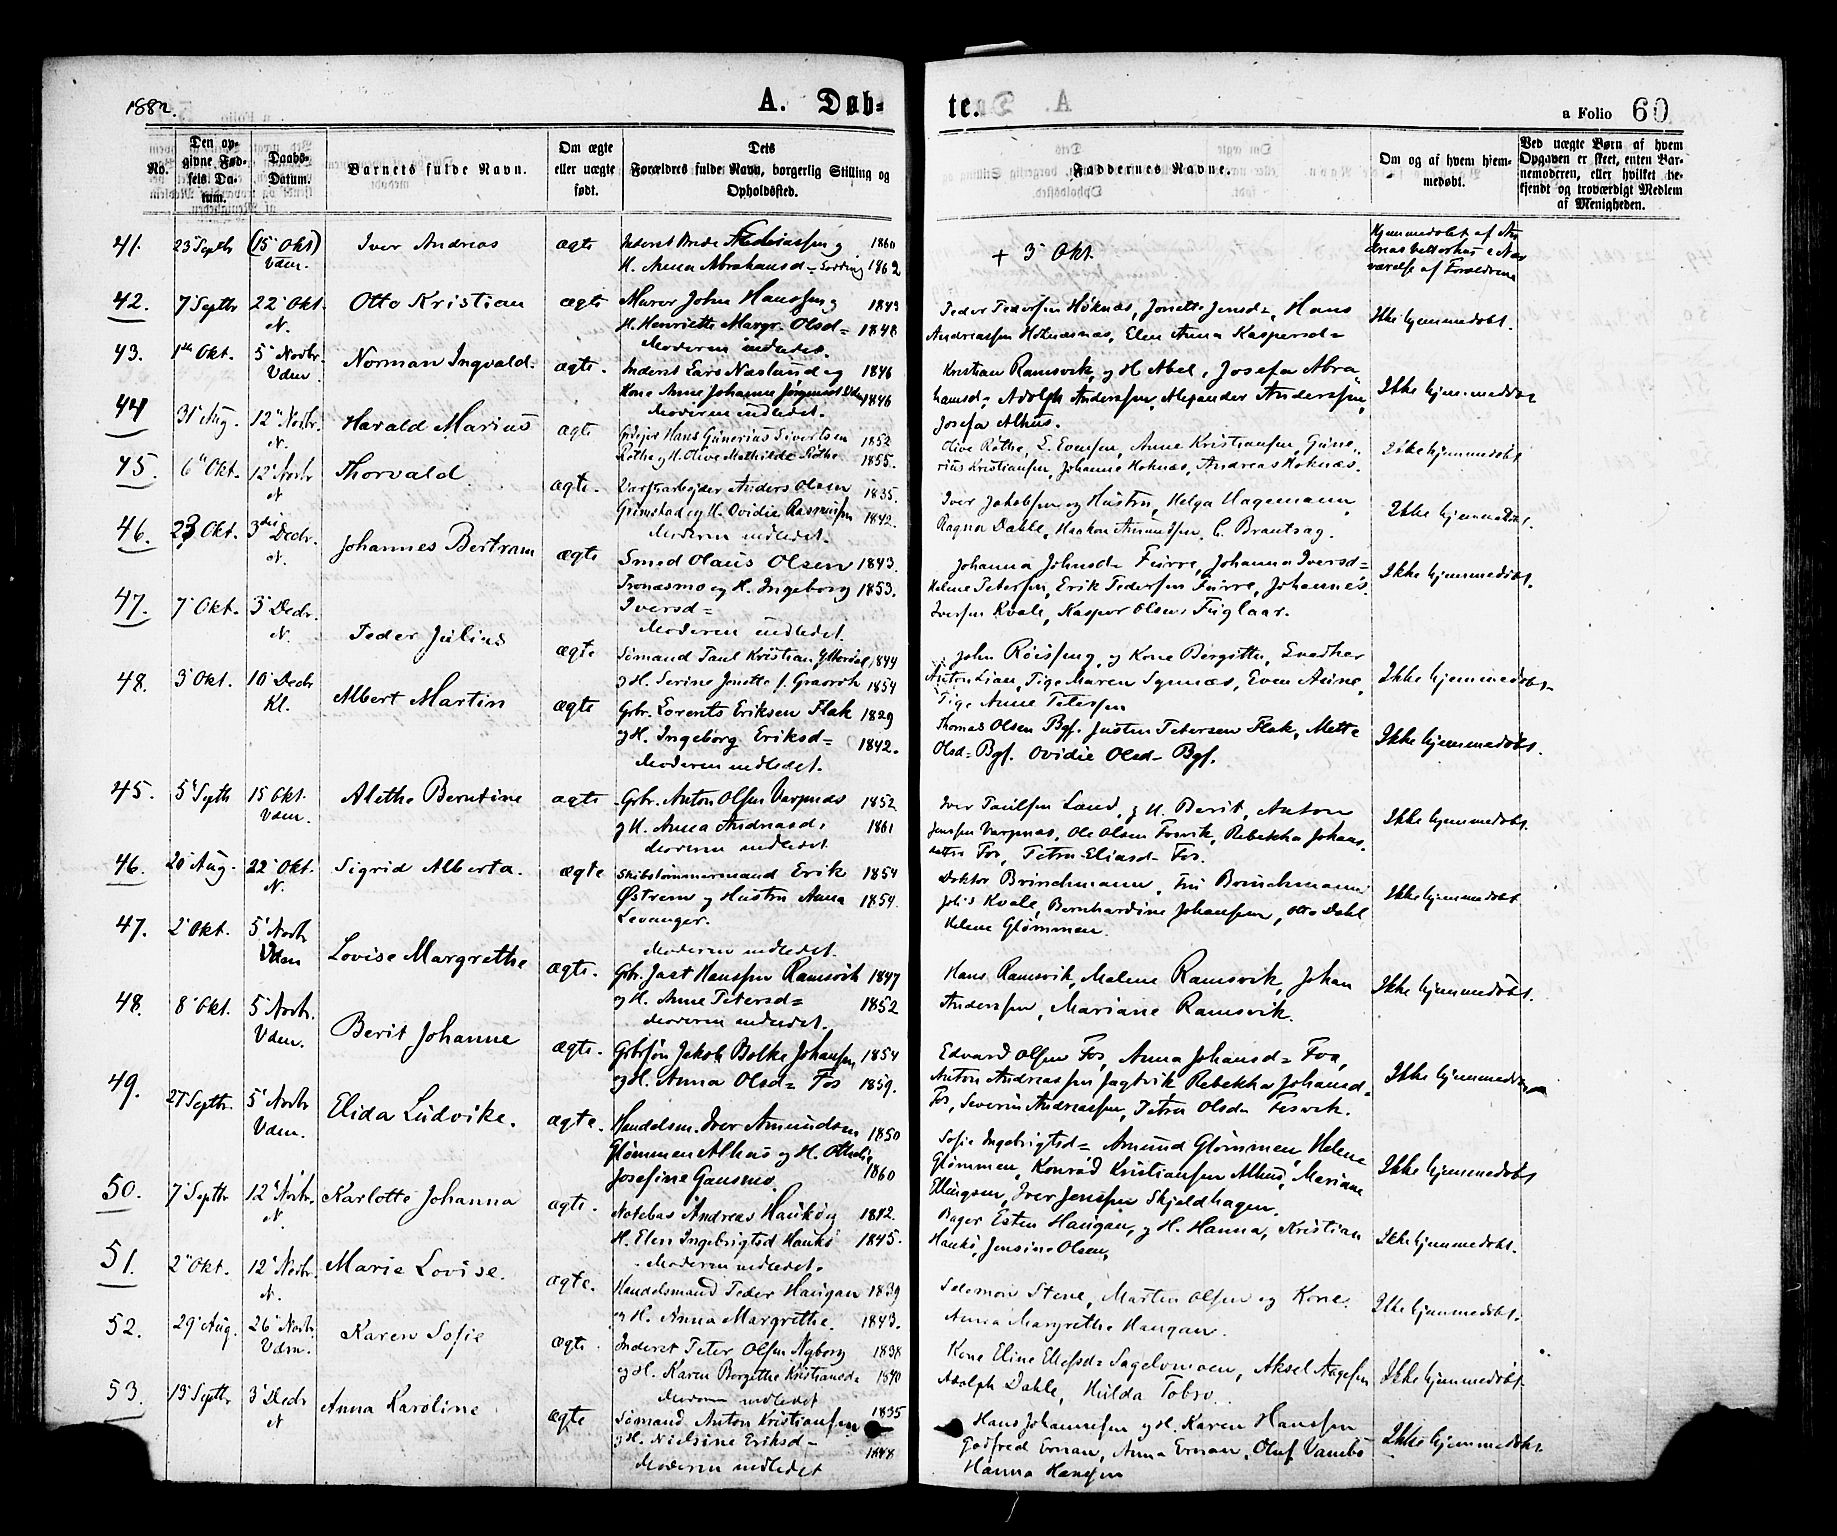 1882.
A. Døb-
te.
a Folio 60
No.
Den op-
givne Fød-
sels Da-
tum.
Daabs-
Datum.
Barnets fulde Navn.
Om ægte
eller uægte
født.
Dets
Forældres fulde Navn, borgerlig Stilling og
Opholdssted.
Faddernes Navne.
Om og af hvem hjem-
medøbt.
Ved uægte Børn af hvem
Opgaven er skeet, enten Bar-
nemoderen, eller hvilket be-
kjendt og troværdigt Medlem
af Menigheden.
41. 23 Septbr (15 Okt) Iver Andreas ægte 1860
Vdm. H. Anna Abrahamsd= 1862
+ 3 Okt.
Hjemmedøbt af An
dreas
værelse af Forældrene
42. 7 Septbr 22 Okt. Otto Kristian ægte Murer John Hanssen og 1843
N. H. Henriette Margr. Olsd= 1848
Moderen indledet.
Peder Pedersen Høknæs, Jonette Jensd=, Hans
Andreassen Høknæsnæs, Elen Anna Kaspersd=
Ikke hjemmedøbt.
43. 1ste Okt. 5 Novbr. Norman Ingvald. ægte. Inderst Lars Næslund og 1846
Vdm. Kone Anne Johanne Jørgensd 1846
Moderen indledet.
Kristian Ramsvik og H. Abel, Josefa Abra
hamsd=, Adolph Anderssen, Alexander Anderssen,
Josefa Alhus.
Ikke hjemmedøbt
44 31 Aug. 12 Novbr. Harald Marius ægte Hans Gunerius Sivertsen 1852
N. Røthe og H. Olive Mathilde Røthe 1855.
Olive Røthe, E. Evensen, Anne Kristiansen, Gune-
rius Kristiansen, Johanne Høknæs, Andreas Høknæs.
Ikke hjemmedøbt
45. 6 Okt. 12 Novbr Thorvald. ægte. Anders Olsen 1835.
N Grimstad og H. Ovidie Rasmussen 1842.
Moderen indledet.
Iver Jakobsen og Hustru, Helga Hagemann,
Ragna Dahle, Haakon Amundsen, C. Brautsag.
Ikke hjemmedøbt.
46. 23 Okt. 3die Decbr. Johannes Bertram ægte Smed Olaus Olsen 1843.
N. Tronæsmo og H. Ingeborg 1853.
Iversd=
Moderen indledet.
Johanna Johnsd= Furre, Johanna Iversd=
Helene Petersen, Erik Pedersen Furre, Johannes
Iversen Kvale, Kasper Olsen Fuglaar.
Ikke hjemmedøbt.
47. 7 Okt. 3 Decbr. Peder Julius ægte Sømand Paul Kristian Ytterdal 1844
N. og H. Serine Jonette f. 1854
John Røissing og Kone Bergitte,
Anton Lian, Pige Maren Synnæs, Even Aune,
Pige Anne Petersen
Ikke hjemmedøbt
48. 3 Okt. 10 Decbr Albert Martin ægte Gbr. Lorents Eriksen Flak 1829
Kl. og H. Ingeborg Eriksd= 1842.
Moderen indledet.
Thomas Olsen Bgf. Justin Petersen Flak, Mette
Olsd= Bgf. Ovidie Olsd= Bgf.
Ikke hjemmedøbt.
45. 5 Septb 15 Okt. Alethe Berntine ægte Gbr. Anton Olsen Varpnæs 1852
Vdm. og H. Anna Andreasd. 1861
Moderen indledet
Iver Paulsen Lund, og H. Berit, Anton
Jenssen Varpnæs, Ole Olsen Fosvik, Rebekka Johans-
Fos, Petra Eliasd= Fos.
Ikke hjemmedøbt.
46. 20 Aug. 22 Okt. Sigrid Alberta. ægte Skibstømmermand Erik 1854
N. Østrem og Hustru Anna 1859.
Levanger.
Moderen indledet.
Doktor Brinchmann, Fru Brinchmann
Kvale, Bernhardine Johansen, Otto Dahl
Helene Glømmen.
Ikke hjemmedøbt
47. 2 Okt. 5 Novbr Lovise Margrethe ægte. Gbr. Jast Hanssen Ramsvik 1847
Vdm og H. Anne Petersd= 1852
Moderen indledet.
Hans Ramsvik, Malene Ramsvik, Johan
Anderssen, Mariane Ramsvik.
Ikke hjemmedøbt.
48. 8 Okt. 5 Novbr. Berit Johanne ægte. Gbrsøn Jakob Bolke Johansen 1854
Vdm. og H. Anna Olsd= Fos 1859.
Edvard Olsen Fos, Anna Johansd= Fos,
Anton Andreassen Jagtvik Rebekka Johansd=
Fos, Severin Andreassen, Petra Olsd= Fosvik.
Ikke hjemmedøbt
49. 27 Septbr. 5 Novbr Elida Ludvike. ægte. Handelsm. Iver Amundsen 1850
Vdm. Glømmen Alhus og H. Othelie 1860
Josefine Gausmo.
Sofie Ingebrigtsd= Amund Glømmen, Helene
Glømmen, Konrad Kristiansen Alhus, Mariane
Ellingsen, Iver Jenssen Skjeldhagen.
Ikke hjemmedøbt
50. 7 Septbr 12 Novbr. Karlotte Johanna ægte. Notebas Andreas Haukø og 1842.
N. H. Elen Ingebrigtsd Haukø 1845.
Moderen indledet.
Bager Esten Haugan, og H. Hanna, Kristian
Haukø, Jensine Olsen,
Ikke hjemmedøbt.
51. 2 Okt. 12 Novbr. Marie Lovise. ægte. Handelsmand Peder Haugan 1839
N. og H. Anna Margrethe. 1843.
Solomon Stene, Martin Olsen og Kone.
Anna Margrethe Haugan.
Ikke hjemmedøbt.
52. 29 Aug. 26 Novbr. Karen Sofie ægte. Inderst Peter Olsen Nyborg 1838
Vdm. og H. Karen Borgithe Kristiansd= 1840
Moderen indledet
Kone Eline Ellefsd= Sagelvmoen, Aksel Aagesen
Adolph Dahle, Hulda Tobro.
Ikke hjemmedøbt
53. 13 Septbr 3 Decbr Anna Karoline ægte Sømand Anton Kristiansen 1835
N og H. Nielsine Eriksd= 1848
Moderen indledet
Hans Johannesen og H. Karen Hanssen
Godfred Ernan, Anna Ernan, Oluf Vambo
Hanna Hansen
Ikke hjemmedøbt